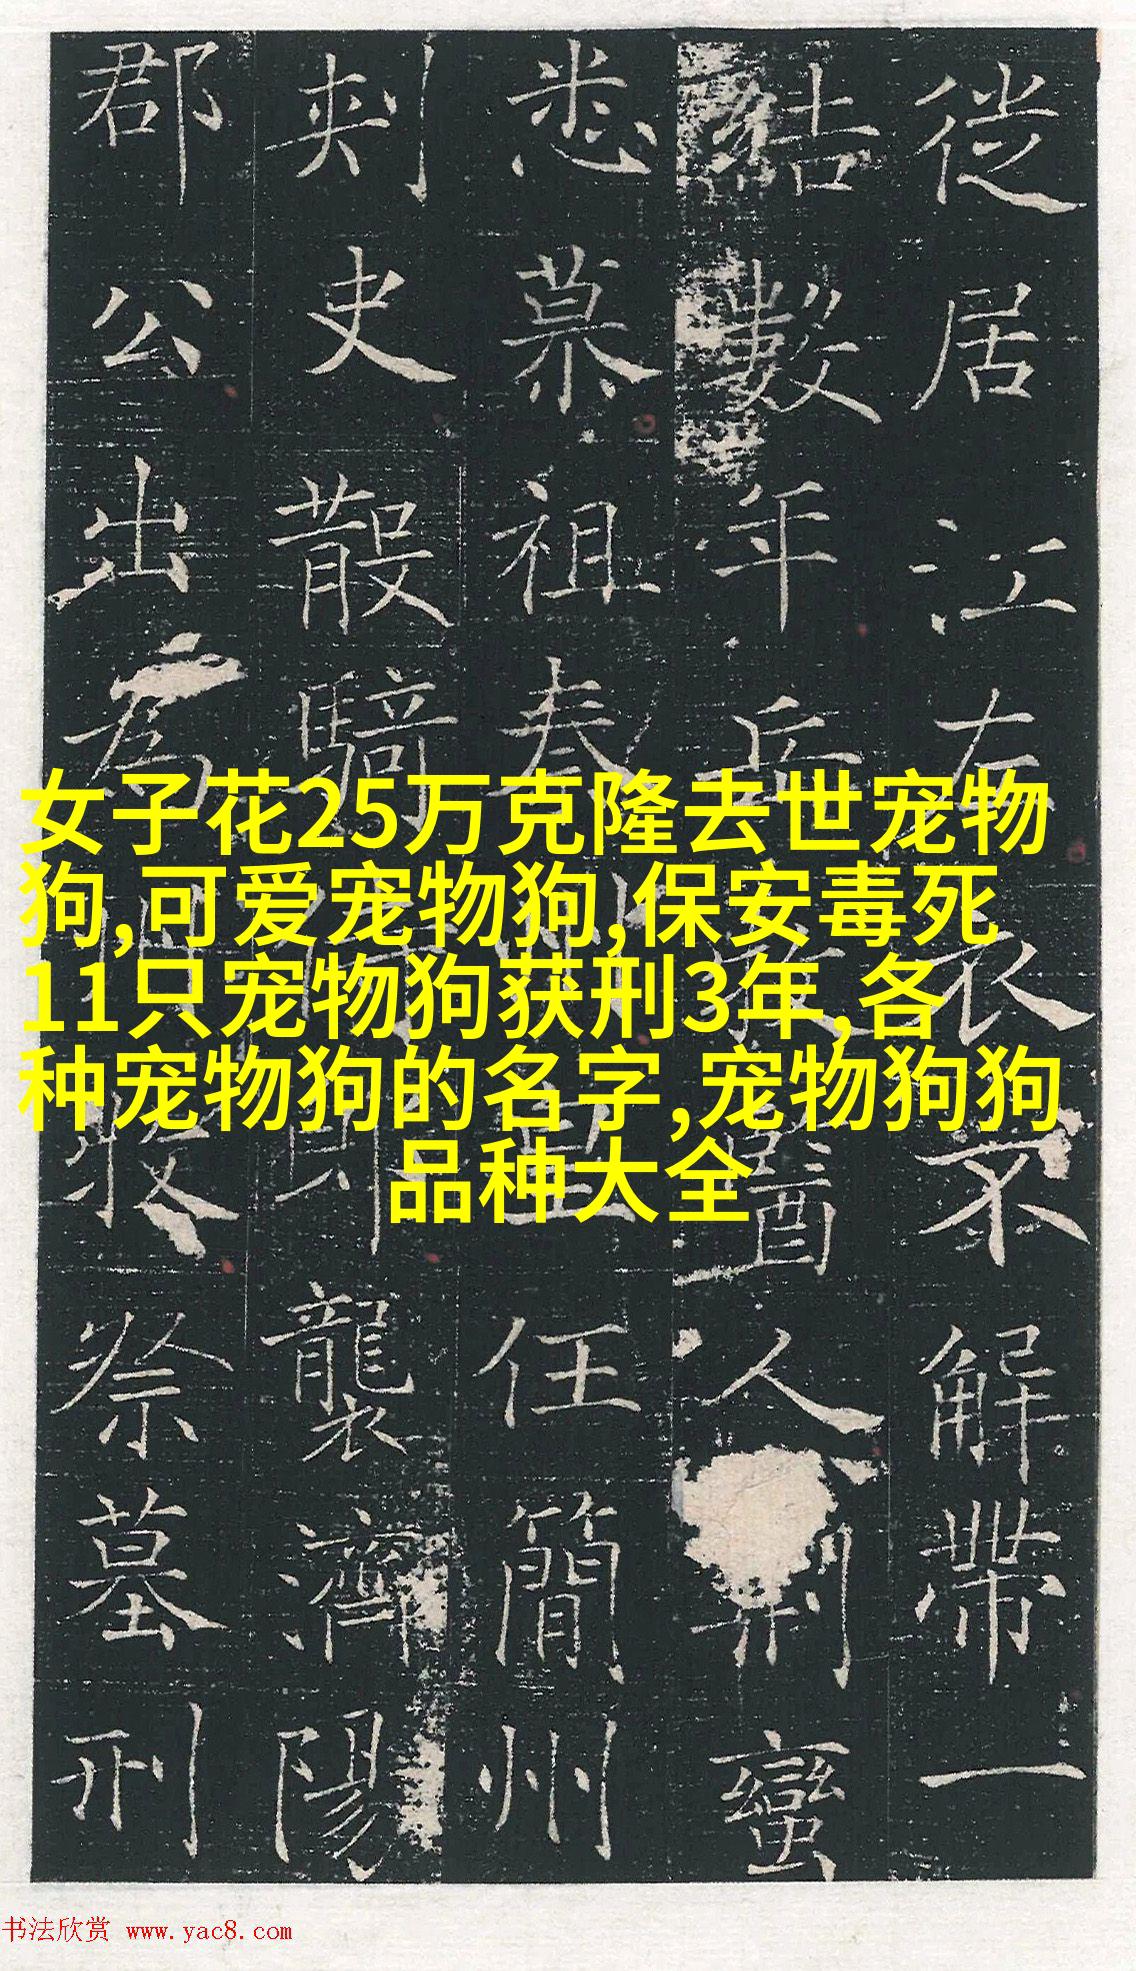 徙居江左衣不解帶一
數年人蠻
慕祖任簡州
刺史散騎襲濟陽
郡公出為祭墓刑
女子花25万克隆去世宠物
狗,可爱宠物狗,保安毒死
11只宠物狗获刑3年,各
种宠物狗的名字,宠物狗狗
品种大全
书法欣赏 www.yac8.com